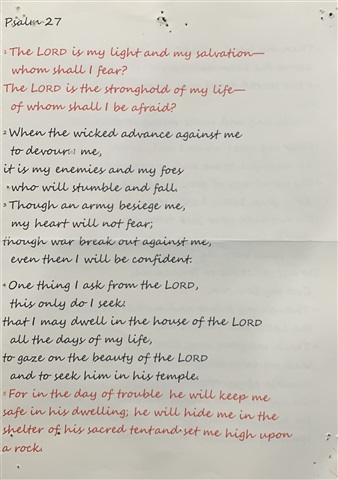 Psalm 27
1 The LORD is my light and my salvation—
whom shall I fear?
The LORD is the stronghold of my life—
of whom shall I be afraid?
2 When the wicked advance against me
to devour me,
it is my enemies and my foes
who will stumble and fall.
3 Though an army besiege me,
my heart will not fear;
though war break out against me,
even then I will be confident.
4 One thing I ask from the LORD,
this only do I seek:
that I may dwell in the house of the LORD
all the days of my life,
to gaze on the beauty of the LORD
and to seek him in his temple.
5 For in the day of trouble he will keep me
safe in his dwelling; he will hide me in the
shelter of his sacred tent and set me high upon
a rock.